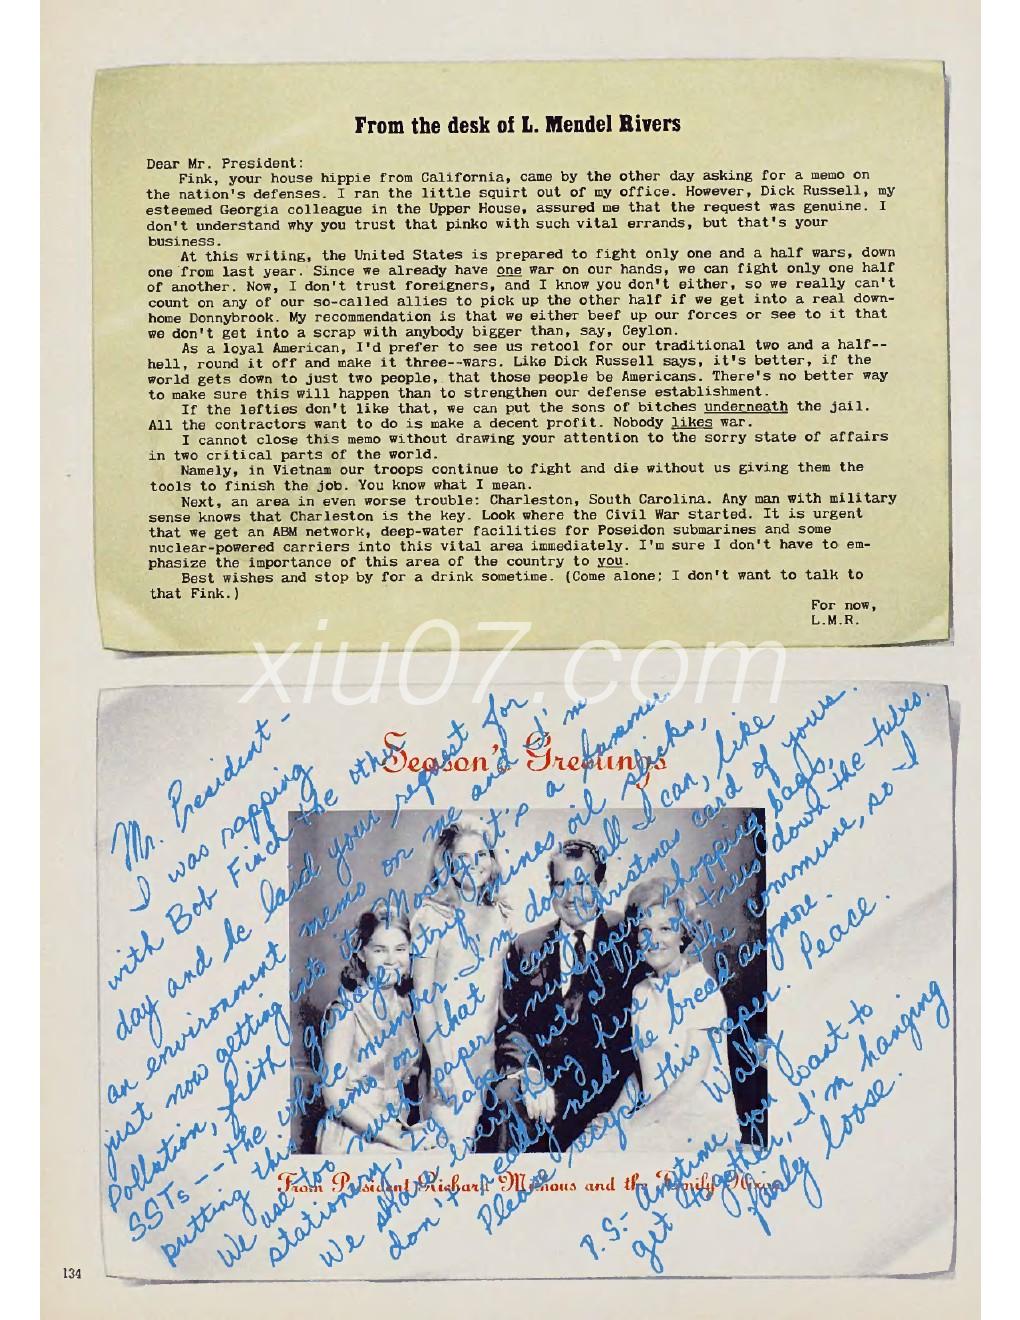 From the desk of L. Mendel Rivers
Dear Mr. President:
Fink, your house hippie from California, came by the other day asking for a memo on
the nation's defenses. I ran the little squirt out of my office. However, Dick Russell, my
esteemed Georgia colleague in the Upper House, assured me that the request was genuine. I
don't understand why you trust that pinko with such vital errands, but that's your
business.
At this writing, the United States is prepared to fight only one and a half wars, down
one from last year. Since we already have one war on our hands, we can fight only one half
of another. Now, I don't trust foreigners, and I know you don't either, so we really can't
count on any of our so-called allies to pick up the other half if we get into a real down-
home Donnybrook. My recommendation is that we either beef up our forces or see to it that
we don't get into a scrap with anybody bigger than, say, Ceylon.
As a loyal American, I'd prefer to see us retool for our traditional two and a half--
hell, round it off and make it three--wars. Like Dick Russell says, it's better, if the
world gets down to just two people, that those people be Americans. There's no better way
to make sure this will happen than to strengthen our defense establishment.
If the lefties don't like that, we can put the sons of bitches underneath the jail.
All the contractors want to do is make a decent profit. Nobody likes war.
I cannot close this memo without drawing your attention to the sorry state of affairs
in two critical parts of the world.
Namely, in Vietnam our troops continue to fight and die without us giving them the
tools to finish the job. You know what I mean.
Next, an area in even worse trouble: Charleston, South Carolina. Any man with military
sense knows that Charleston is the key. Look where the Civil War started. It is urgent
that we get an ABM network, deep-water facilities for Poseidon submarines and some
nuclear-powered carriers into this vital area immediately. I'm sure I don't have to em-
phasize the importance of this area of the country to you.
Best wishes and stop by for a drink sometime. (Come alone; I don't want to talk to
that Fink.)
For now,
L.M.R.
xiu07.com
Season's Greetings
Mr. President -
I was rapping
with Bob Finch the other
day and he laid your request for
an environment memo on me and I'm
just now getting into it. Mostly, it's a bummer.
Pollution, filth, garbage, strip mines, oil slicks,
SSTs -- the whole number. I'm doing all I can, like
putting this memo on that heavy Christmas card of yours.
We use too much paper -- newspapers, shopping bags,
stationery, Zig Zags. Just a lot of trees down the tubes.
We share everything here in the commune, so I
don't really need the bread anymore.
Please recycle this paper. Peace.
Wally
P.S.- Anytime you want to
get together, I'm hanging
fairly loose.
From President Richard Milhous and the Family Nixon
134